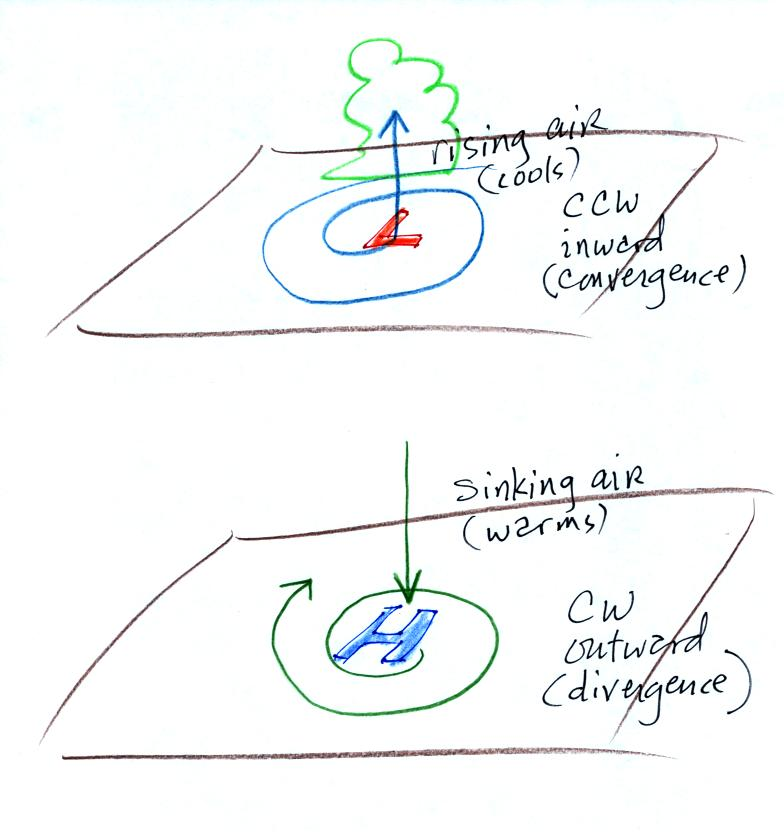 rising air
(cools)
L
CCW
inward
(convergence)
sinking air
(warms)
H
CW
outward
(divergence)